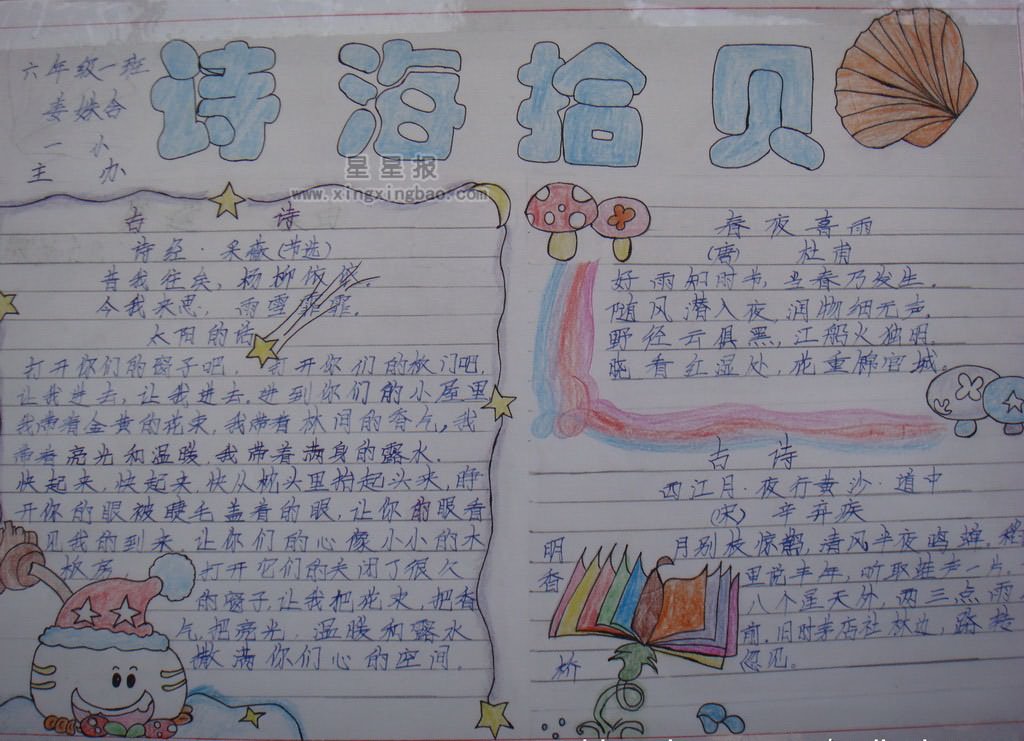 诗海拾贝
六年级一班
一小
主办
星星报
www.xingxingbao.com
古诗
诗经·采薇(节选)
昔我往矣,杨柳依依.
今我来思,雨雪霏霏.
太阳的话
打开你们的窗子吧,打开你们的板门吧,
让我进去,让我进去,进到你们的小屋里
我带着金黄的花束,我带着林间的香气,我
带着亮光和温暖,我带着满身的露水.
快起来,快起来,快从枕头里抬起头来,睁
开你的眼被睫毛盖着的眼,让你的眼看
见我的到来,让你们的心像小小的木
板房打开它们的关闭了很久
的窗子,让我把花束,把香
气,把亮光,温暖和露水
撒满你们心的空间.
春夜喜雨
(唐)杜甫
好雨知时节,当春乃发生.
随风潜入夜,润物细无声.
野径云俱黑,江船火独明.
晓看红湿处,花重锦官城.
古诗
西江月·夜行黄沙·道中
(宋)辛弃疾
明月别枝惊鹊,清风半夜鸣蝉.稻
香里说丰年,听取蛙声一片.
八个星天外,两三点雨
前.旧时茅店社林边,路转
桥忽见。